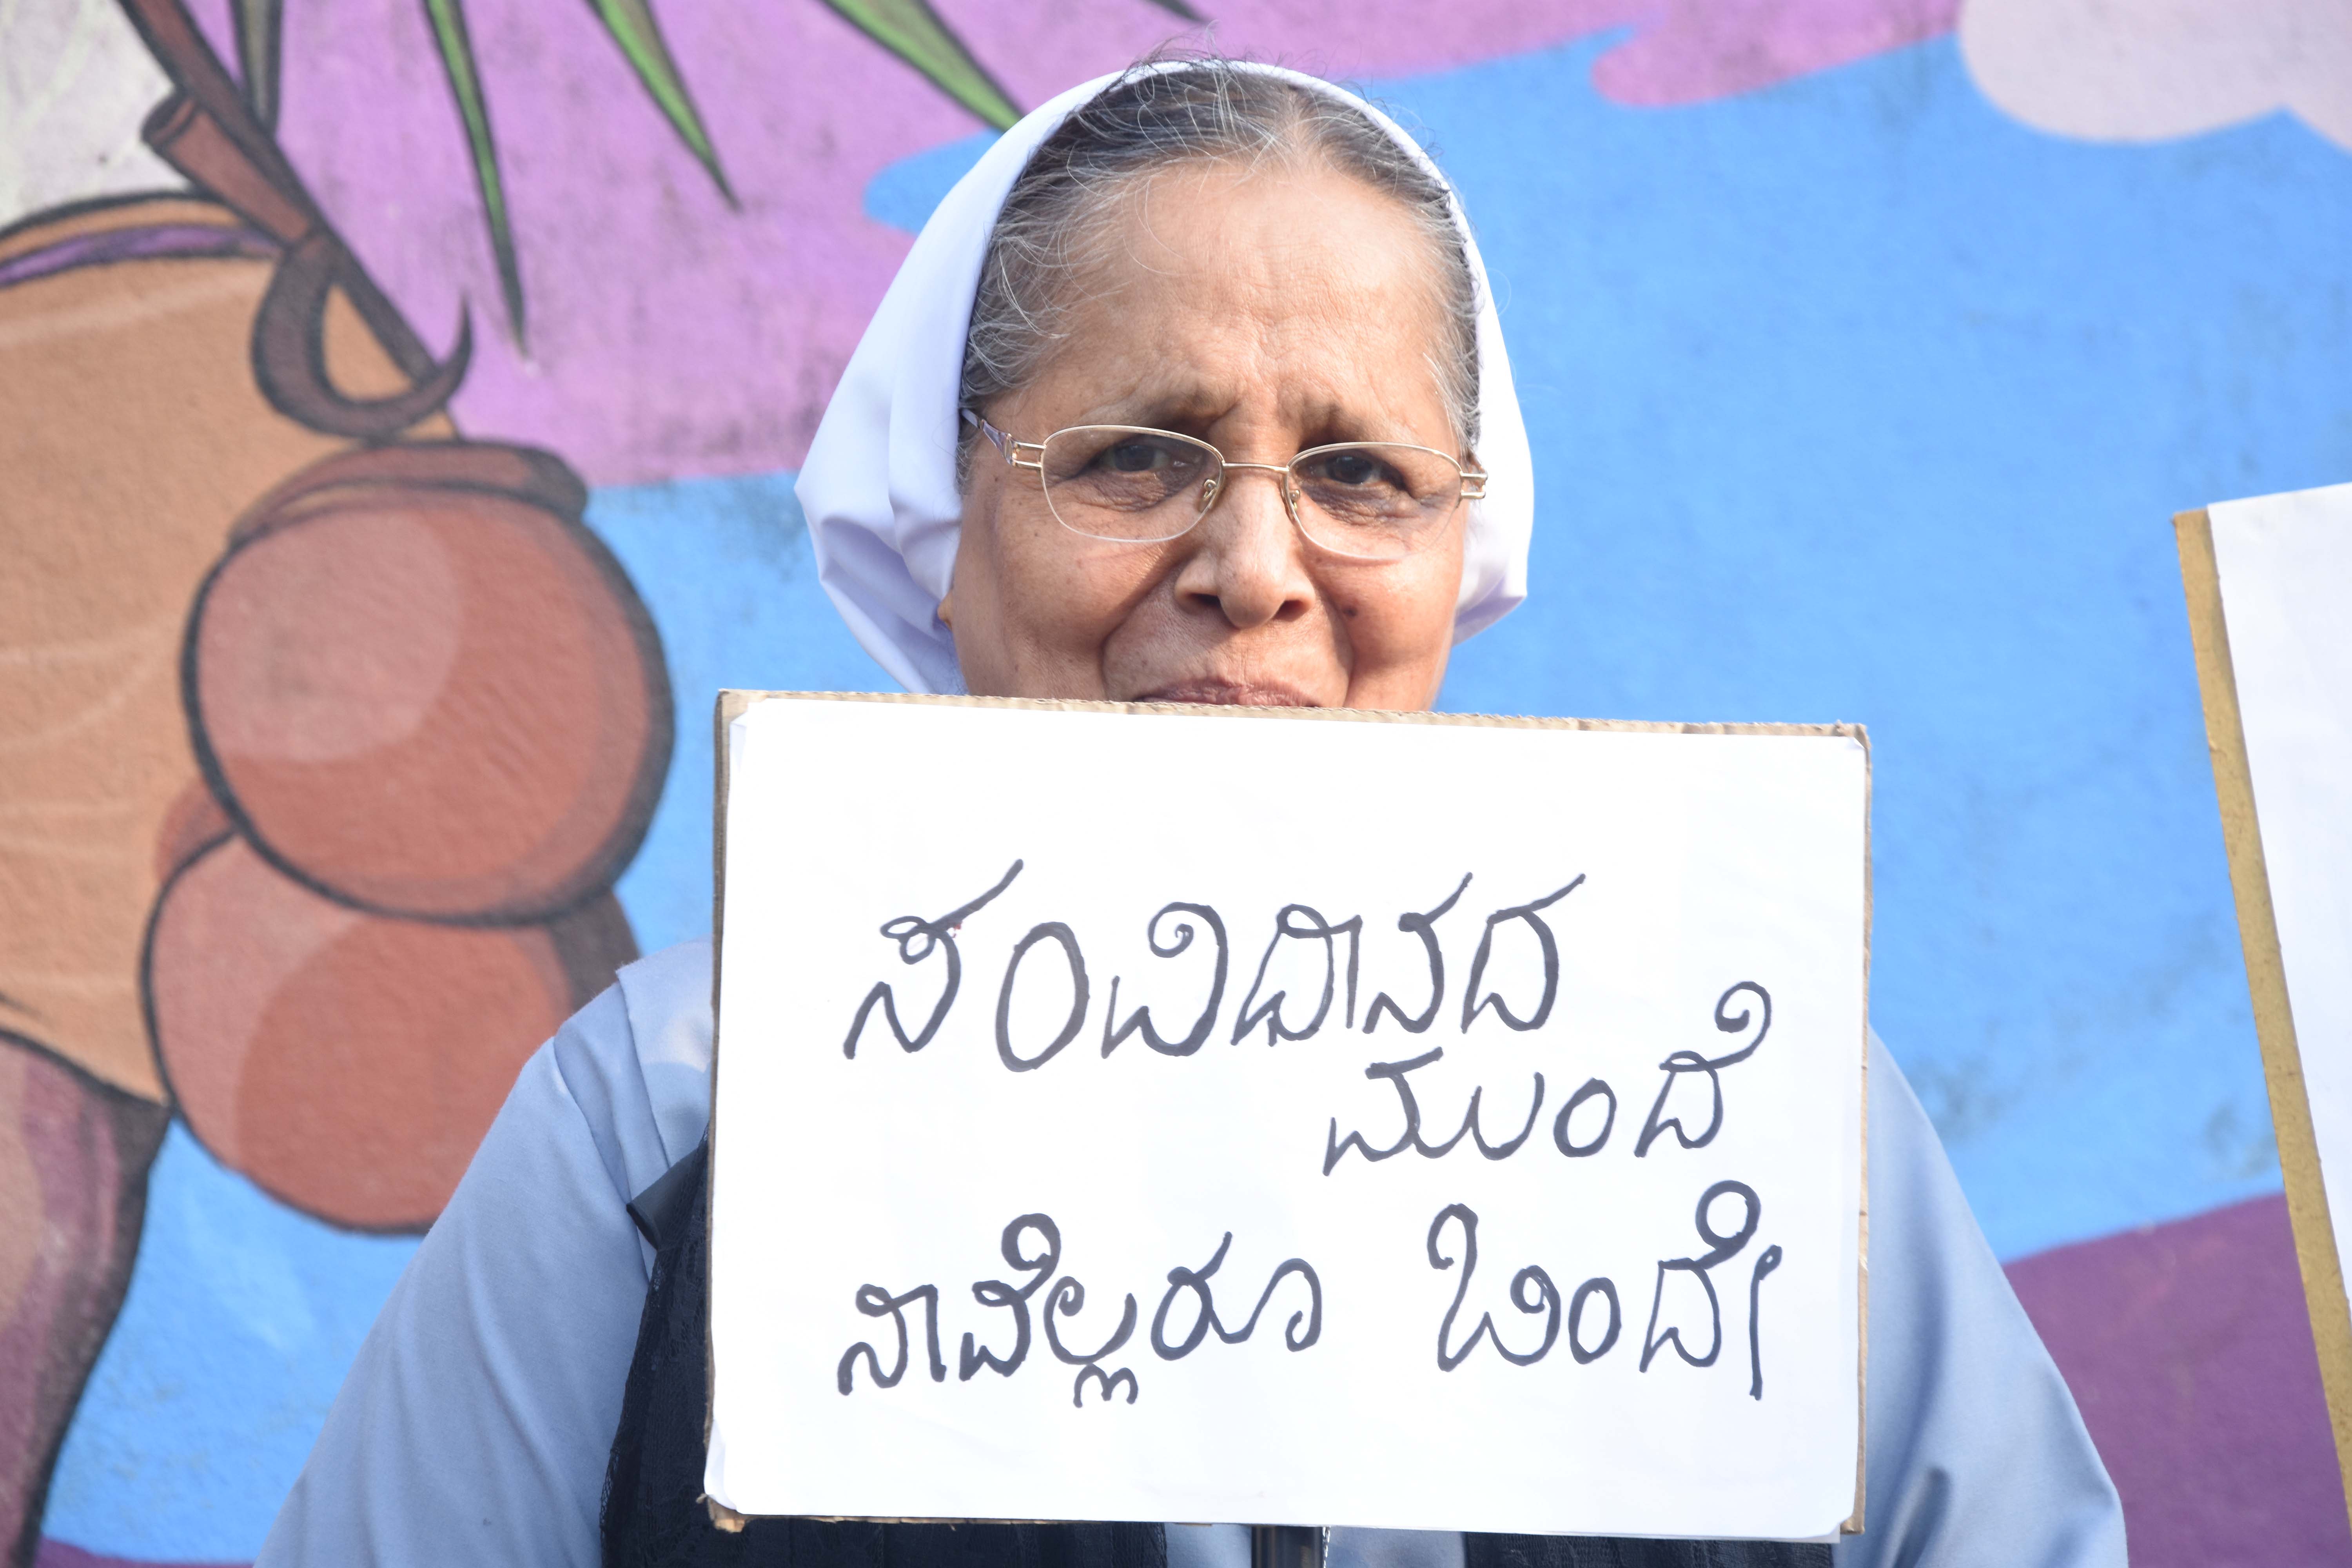 ಸಂವಿಧಾನದ
ಮುಂದೆ
ನಾವೆಲ್ಲರೂ ಒಂದೇ